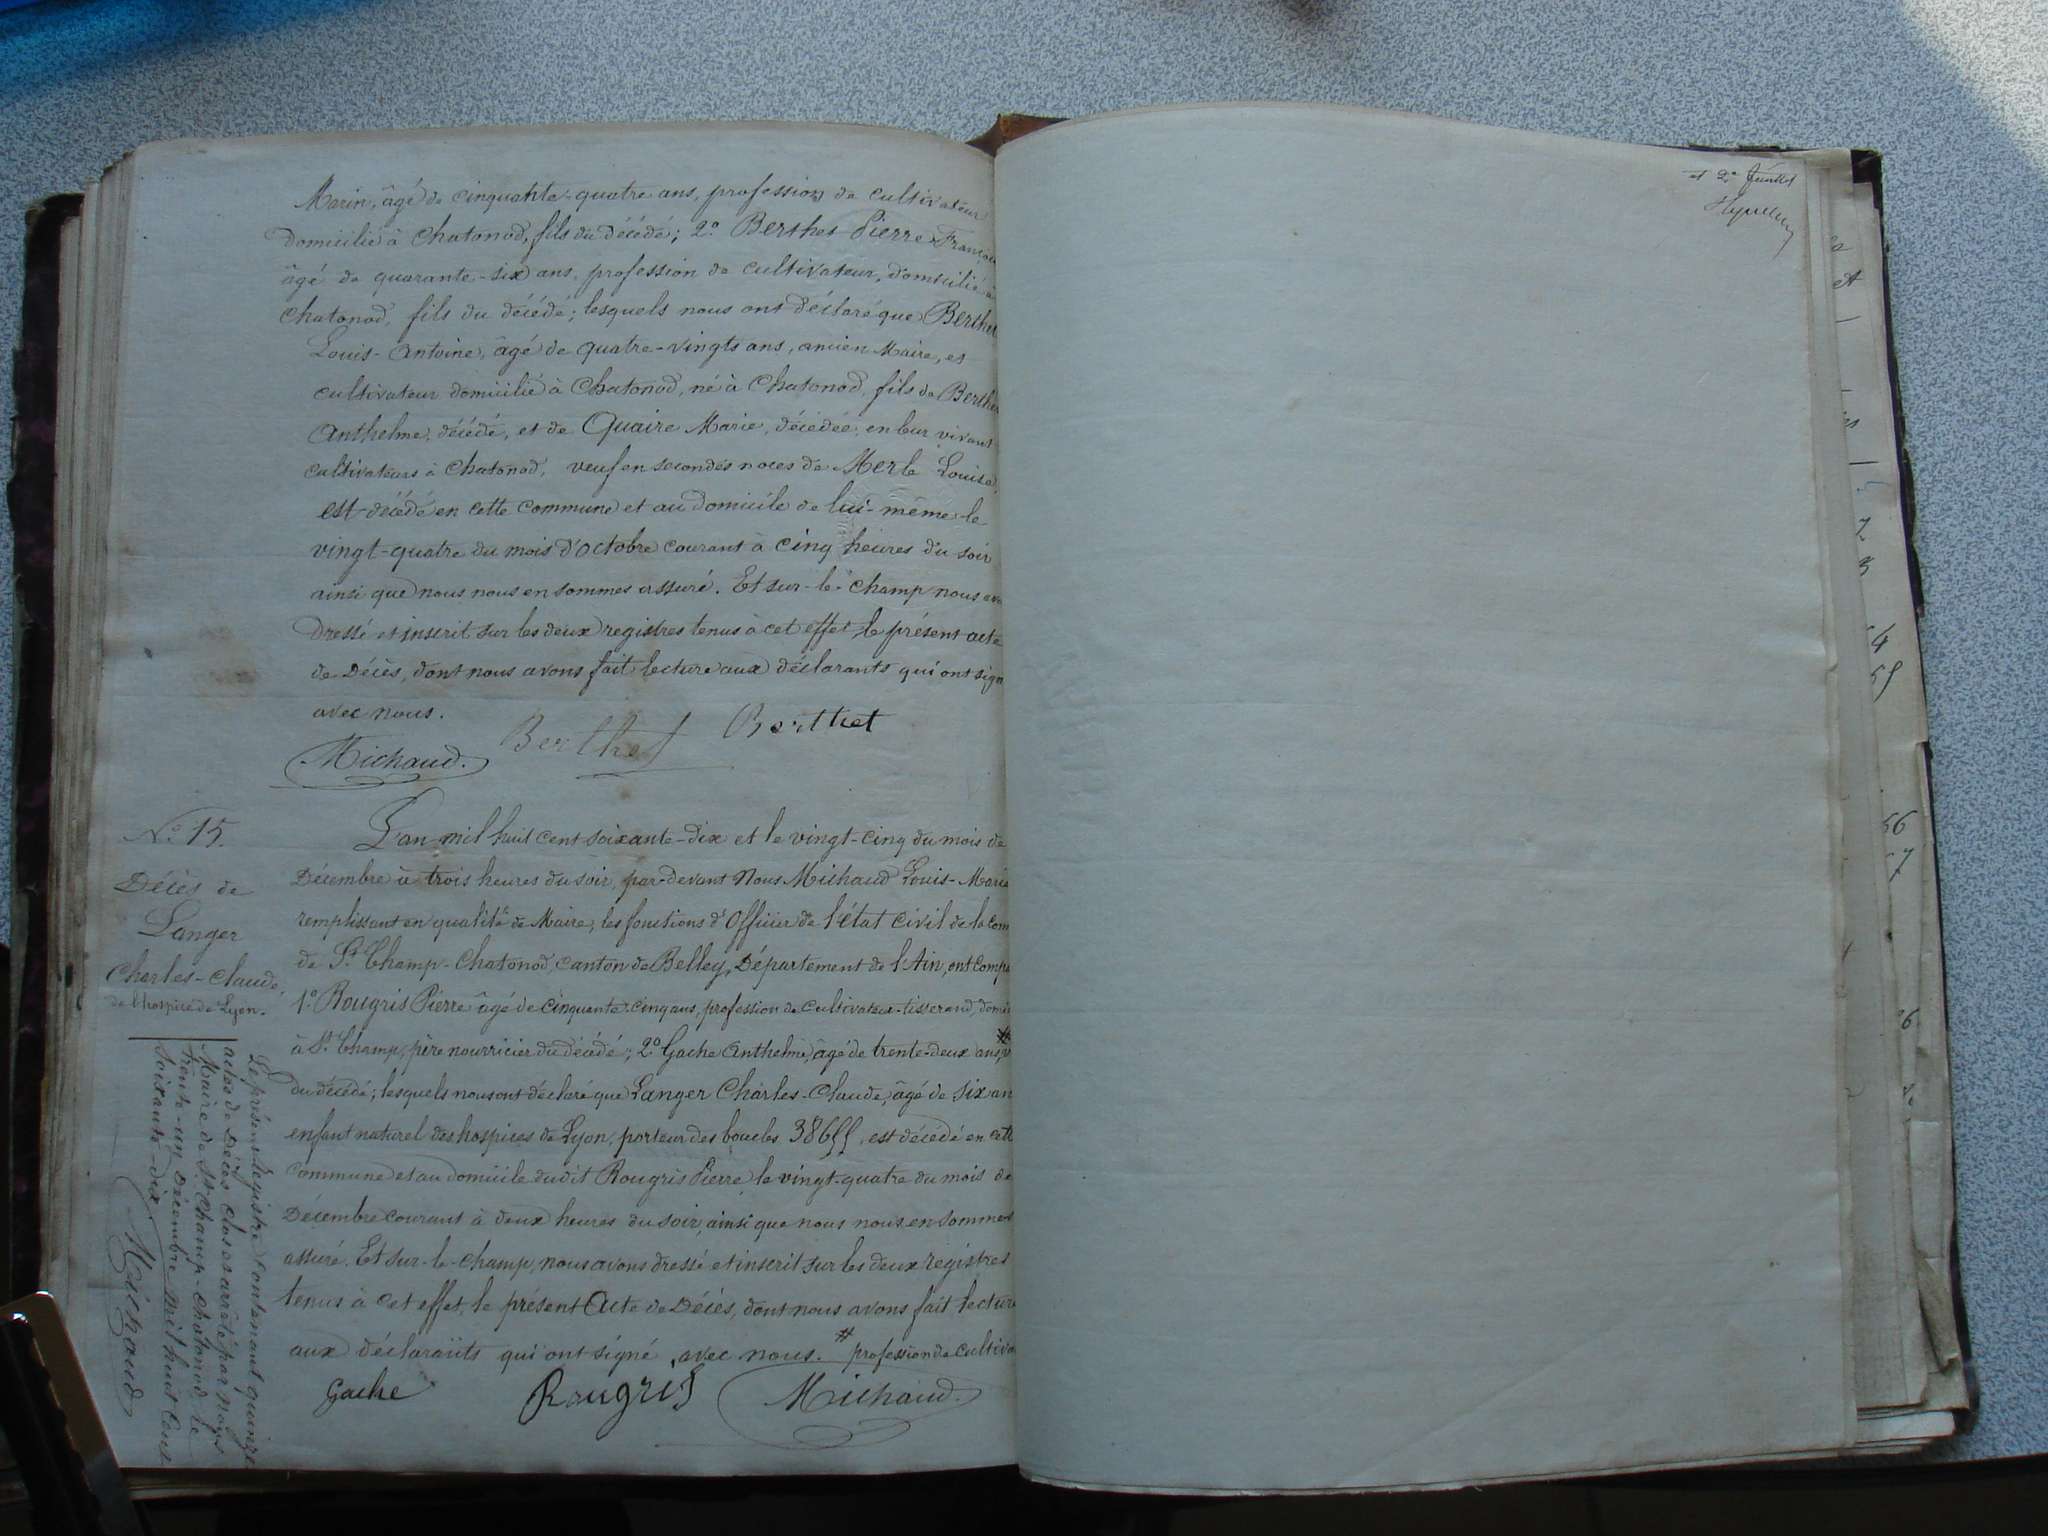 Marin, âgé de cinquante-quatre ans, profession de cultivateur
domicilié à Chatonod, fils du décédé; 2.º Berthet Pierre-François
âgé de quarante-six ans, profession de cultivateur, domicilié à
Chatonod, fils du décédé; lesquels nous ont déclaré que Berthet
Louis-Antoine, âgé de quatre-vingts ans, ancien Maire, et
cultivateur domicilié à Chatonod, né à Chatonod, fils de Berthet
Anthelme, décédé, et de Quaire Marie, décédée, en leur vivant
cultivateurs à Chatonod, veuf en secondes noces de Merle Louise,
est décédé en cette commune et au domicile de lui-même le
vingt-quatre du mois d'Octobre courant à cinq heures du soir
ainsi que nous nous en sommes assuré. Et sur-le-champ nous avo
dressé et inscrit sur les deux registres tenus à cet effet, le présent acte
de Décès, dont nous avons fait lecture aux déclarants qui ont sign
avec nous.
Michaud. Berthet Berthet
Nº 15.
Décès de
Langer
Charles-Claude,
de l'hospice de Lyon.
L'an mil huit cent soixante-dix et le vingt-cinq du mois de
Décembre à trois heures du soir, par-devant Nous Michaud Louis-Marie
remplissant en qualité de Maire, les fonctions d'Officier de l'état civil de la com
de St Champ-Chatonod, canton de Belley, Département de l'Ain, ont compa
1.º Rougris Pierre âgé de cinquante-cinq ans, profession de cultivateur-tisserand, domi
à St Champ, père nourricier du décédé; 2.º Gache Anthelme, âgé de trente-deux ans, #
du décédé; lesquels nous ont déclaré que Langer Charles-Claude, âgé de six an
enfant naturel des hospices de Lyon, porteur des boucles 38655, est décédé en cette
commune et au domicile dudit Rougris Pierre le vingt-quatre du mois de
Décembre courant à deux heures du soir, ainsi que nous nous en sommes
assuré. Et sur-le-champ, nous avons dressé et inscrit sur les deux registres
tenus à cet effet, le présent Acte de Décès, dont nous avons fait lecture
aux déclarants qui ont signé avec nous. # profession de cultiva
Gache Rougris Michaud.
Le présent Registre contenant quinze
actes de Décès clos et arrêté par nous
Maire de St Champ-Chatonod le
trente-un Décembre mil huit cent
soixante-dix.
Michaud
et 2e feuillet
et
1
7
3
4
55
56
57
6